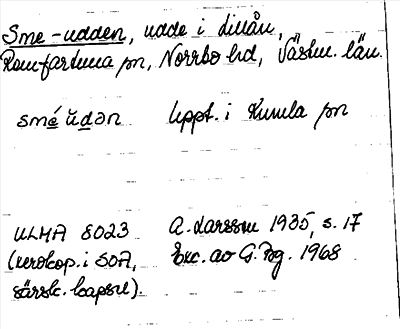 Sme-udden, udde i Lillån,
Romfartuna sn, Norrbo hd, Västm. län.
smé ŭdən uppt. i Kumla sn
ULMA 8023 A. Larsson 1935, s. 17
(xerokop. i SOA, Exc. av G. Bg. 1968
särsk. kapsel).